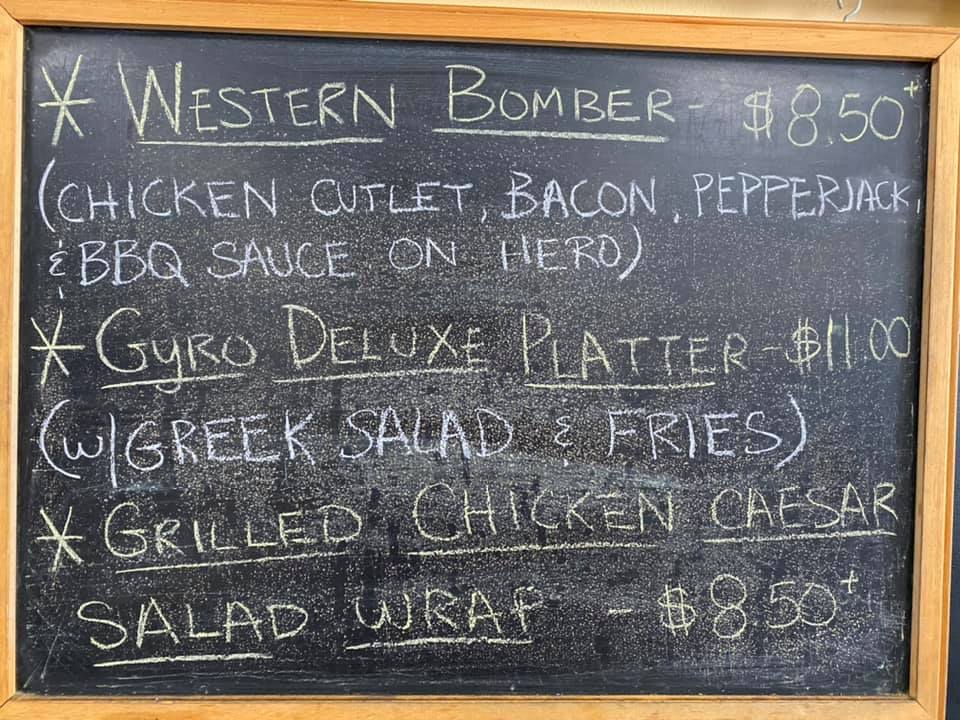 * WESTERN BOMBER - $8.50+
(CHICKEN CUTLET, BACON, PEPPERJACK,
& BBQ SAUCE ON HERO)
* GYRO DELUXE PLATTER - $11.00
(W/ GREEK SALAD & FRIES)
* GRILLED CHICKEN CAESAR
SALAD WRAP - $8.50+